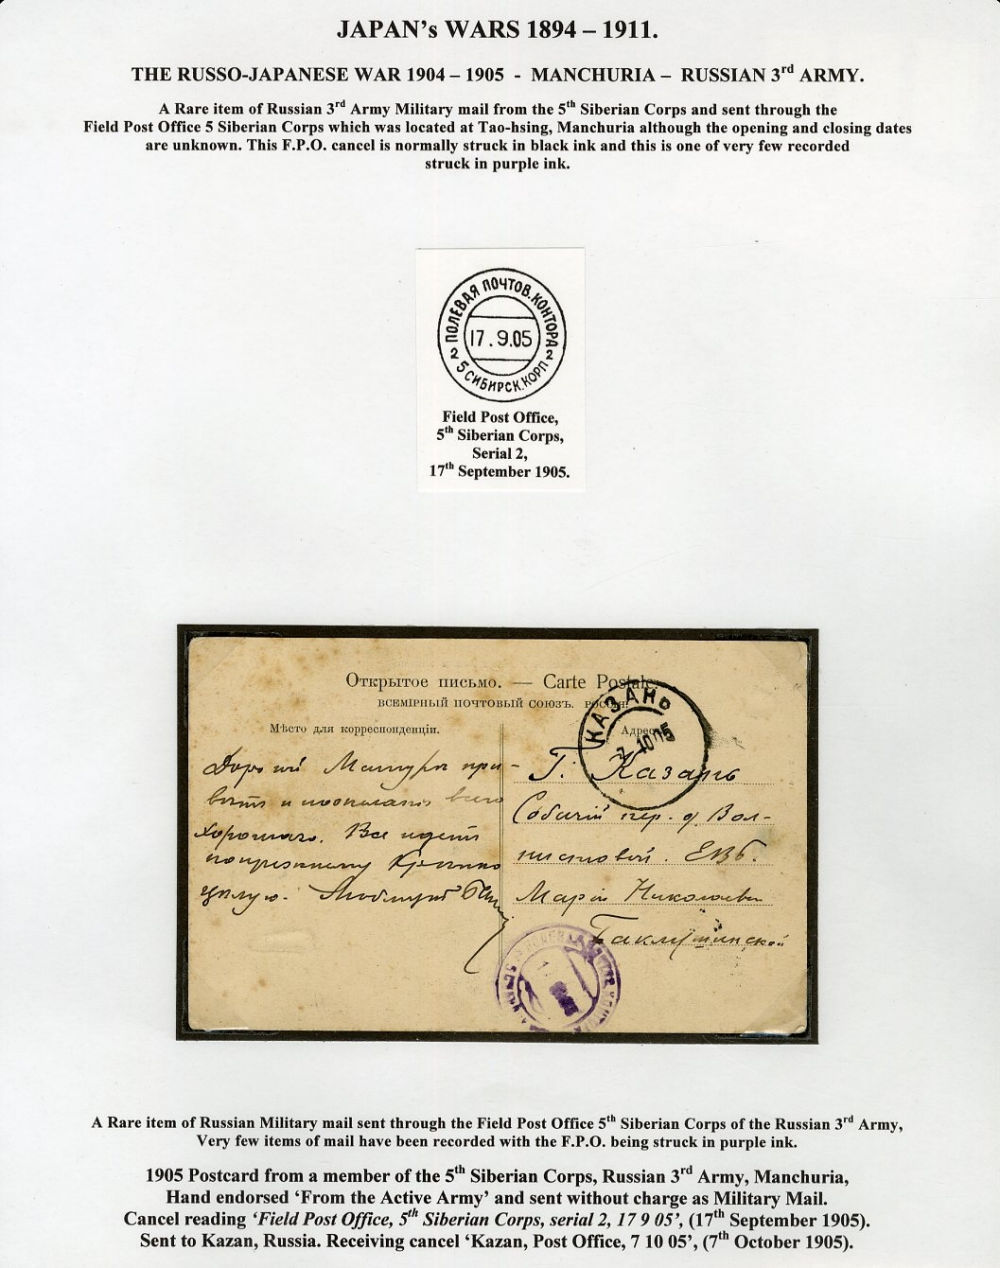 JAPAN's WARS 1894 – 1911.
THE RUSSO-JAPANESE WAR 1904 – 1905 - MANCHURIA – RUSSIAN 3rd ARMY.
A Rare item of Russian 3rd Army Military mail from the 5th Siberian Corps and sent through the
Field Post Office 5 Siberian Corps which was located at Tao-hsing, Manchuria although the opening and closing dates
are unknown. This F.P.O. cancel is normally struck in black ink and this is one of very few recorded
struck in purple ink.
ПОЛЕВАЯ ПОЧТОВ. КОНТОРА
17.9.05
2 5 СИБИРСК. КОРП 2
Field Post Office,
5th Siberian Corps,
Serial 2,
17th September 1905.
Открытое письмо. — Carte Postale.
ВСЕМІРНЫЙ ПОЧТОВЫЙ СОЮЗЪ. РОССІЯ.
Мѣсто для корреспонденціи.
Адрес
КАЗАНЬ
7 10 05
Дорогой при-
всего
хорошаго. Все идетъ
по прежнему Крѣпко
цѣлую. Любящій
Г. Казань
Собачій пер. д. Вол-
ЕВБ.
Маріи Николаевн
A Rare item of Russian Military mail sent through the Field Post Office 5th Siberian Corps of the Russian 3rd Army,
Very few items of mail have been recorded with the F.P.O. being struck in purple ink.
1905 Postcard from a member of the 5th Siberian Corps, Russian 3rd Army, Manchuria,
Hand endorsed ‘From the Active Army’ and sent without charge as Military Mail.
Cancel reading ‘Field Post Office, 5th Siberian Corps, serial 2, 17 9 05’, (17th September 1905).
Sent to Kazan, Russia. Receiving cancel ‘Kazan, Post Office, 7 10 05’, (7th October 1905).